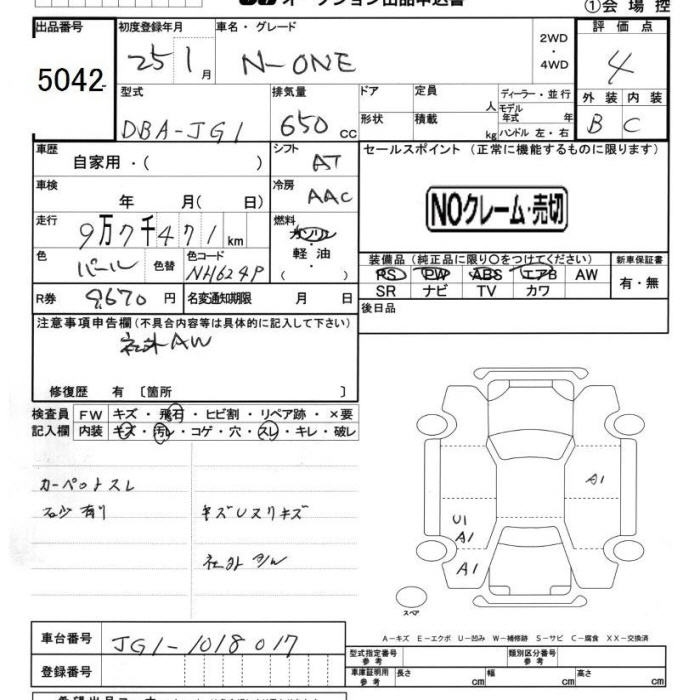 オークション出品申込書
①会場控
出品番号 初度登録年月 車名・グレード 2WD・4WD 評価点
5042 25 1月 N-ONE 4
型式 排気量 ドア 定員 人 ディーラー・並行 外装 内装
DBA-JG1 650cc 形状 積載 kg モデル年式 年 ハンドル 左・右 B C
車歴 自家用・( ) シフト AT セールスポイント (正常に機能するものに限ります)
車検 年 月(日) 冷房 AAC
NOクレーム・売切
走行 9万7千471km 燃料 ガソリン 軽油 ( )
色 パール 色替 色コード NH624P
装備品 (純正品に限り○をつけてください) 新車保証書
PS PW ABS エアB AW 有・無
SR ナビ TV カワ
R券 9670円 名変通知期限 月 日 後日品
注意事項申告欄(不具合内容等は具体的に記入して下さい)
社外AW
修復歴 有 〔箇所 〕
検査員 FW キズ・飛石・ヒビ割・リペア跡・×要
記入欄 内装 キズ・汚レ・コゲ・穴・スレ・キレ・破レ
カーペットスレ
石少有り キズUスリキズ
A1
U1
A1
A1
スペア
A－キズ E－エクボ U－凹み W－補修跡 S－サビ C－腐食 XX－交換済
車台番号 JG1-1018017
型式指定番号 参考 類別区分番号 参考
登録番号 車庫証明用 参考 長さ cm 幅 cm 高さ cm
希望出品コーナー